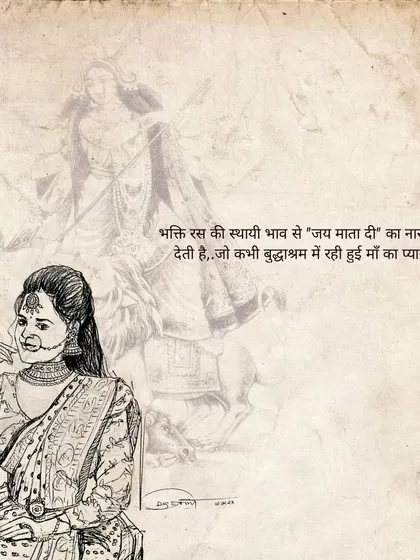 भक्ति रस की स्थायी भाव से "जय माता दी" का
देती है,.जो कभी बुद्धाश्रम में रही हुई माँ का